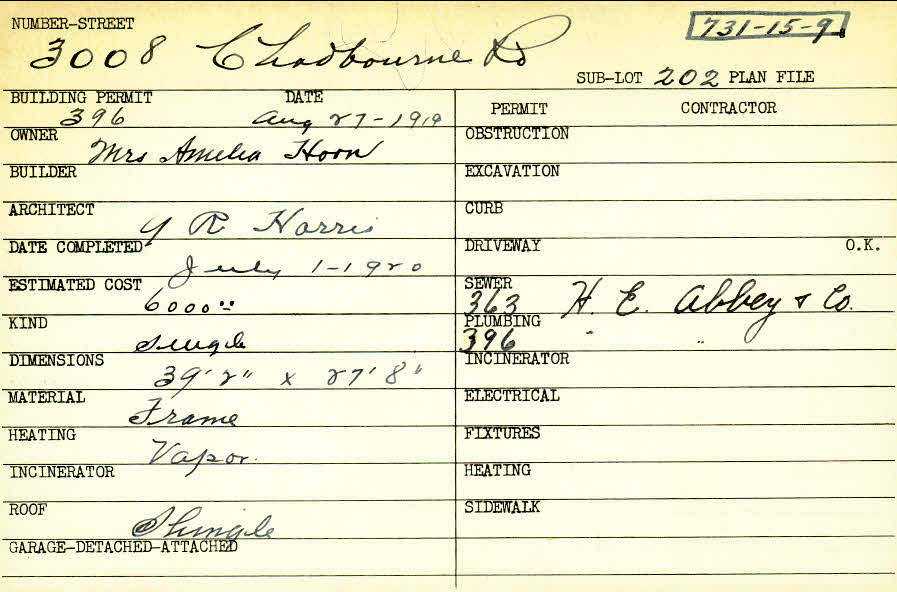 NUMBER-STREET
731-15-9
3008 Chadbourne Rd
SUB-LOT 202 PLAN FILE
BUILDING PERMIT DATE
396 Aug 27-1919
OWNER
Mrs Amelia Horn
BUILDER
ARCHITECT
Y R Harris
DATE COMPLETED
July 1-1920
ESTIMATED COST
6000
KIND
Single
DIMENSIONS
39'2" x 27'8"
MATERIAL
Frame
HEATING
Vapor.
INCINERATOR
ROOF
Shingle
GARAGE-DETACHED-ATTACHED
PERMIT CONTRACTOR
OBSTRUCTION
EXCAVATION
CURB
DRIVEWAY O.K.
SEWER
363 H. E. Abbey & Co.
PLUMBING
396 " "
INCINERATOR
ELECTRICAL
FIXTURES
HEATING
SIDEWALK